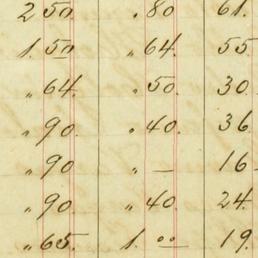 2 50. . 80 61.
1. 50 " 64. 55
" 64. " 50. 30
" 90. " 40. 36
" 90 " — 16
" 90 " 40 24
" 65. 1. 00 19.